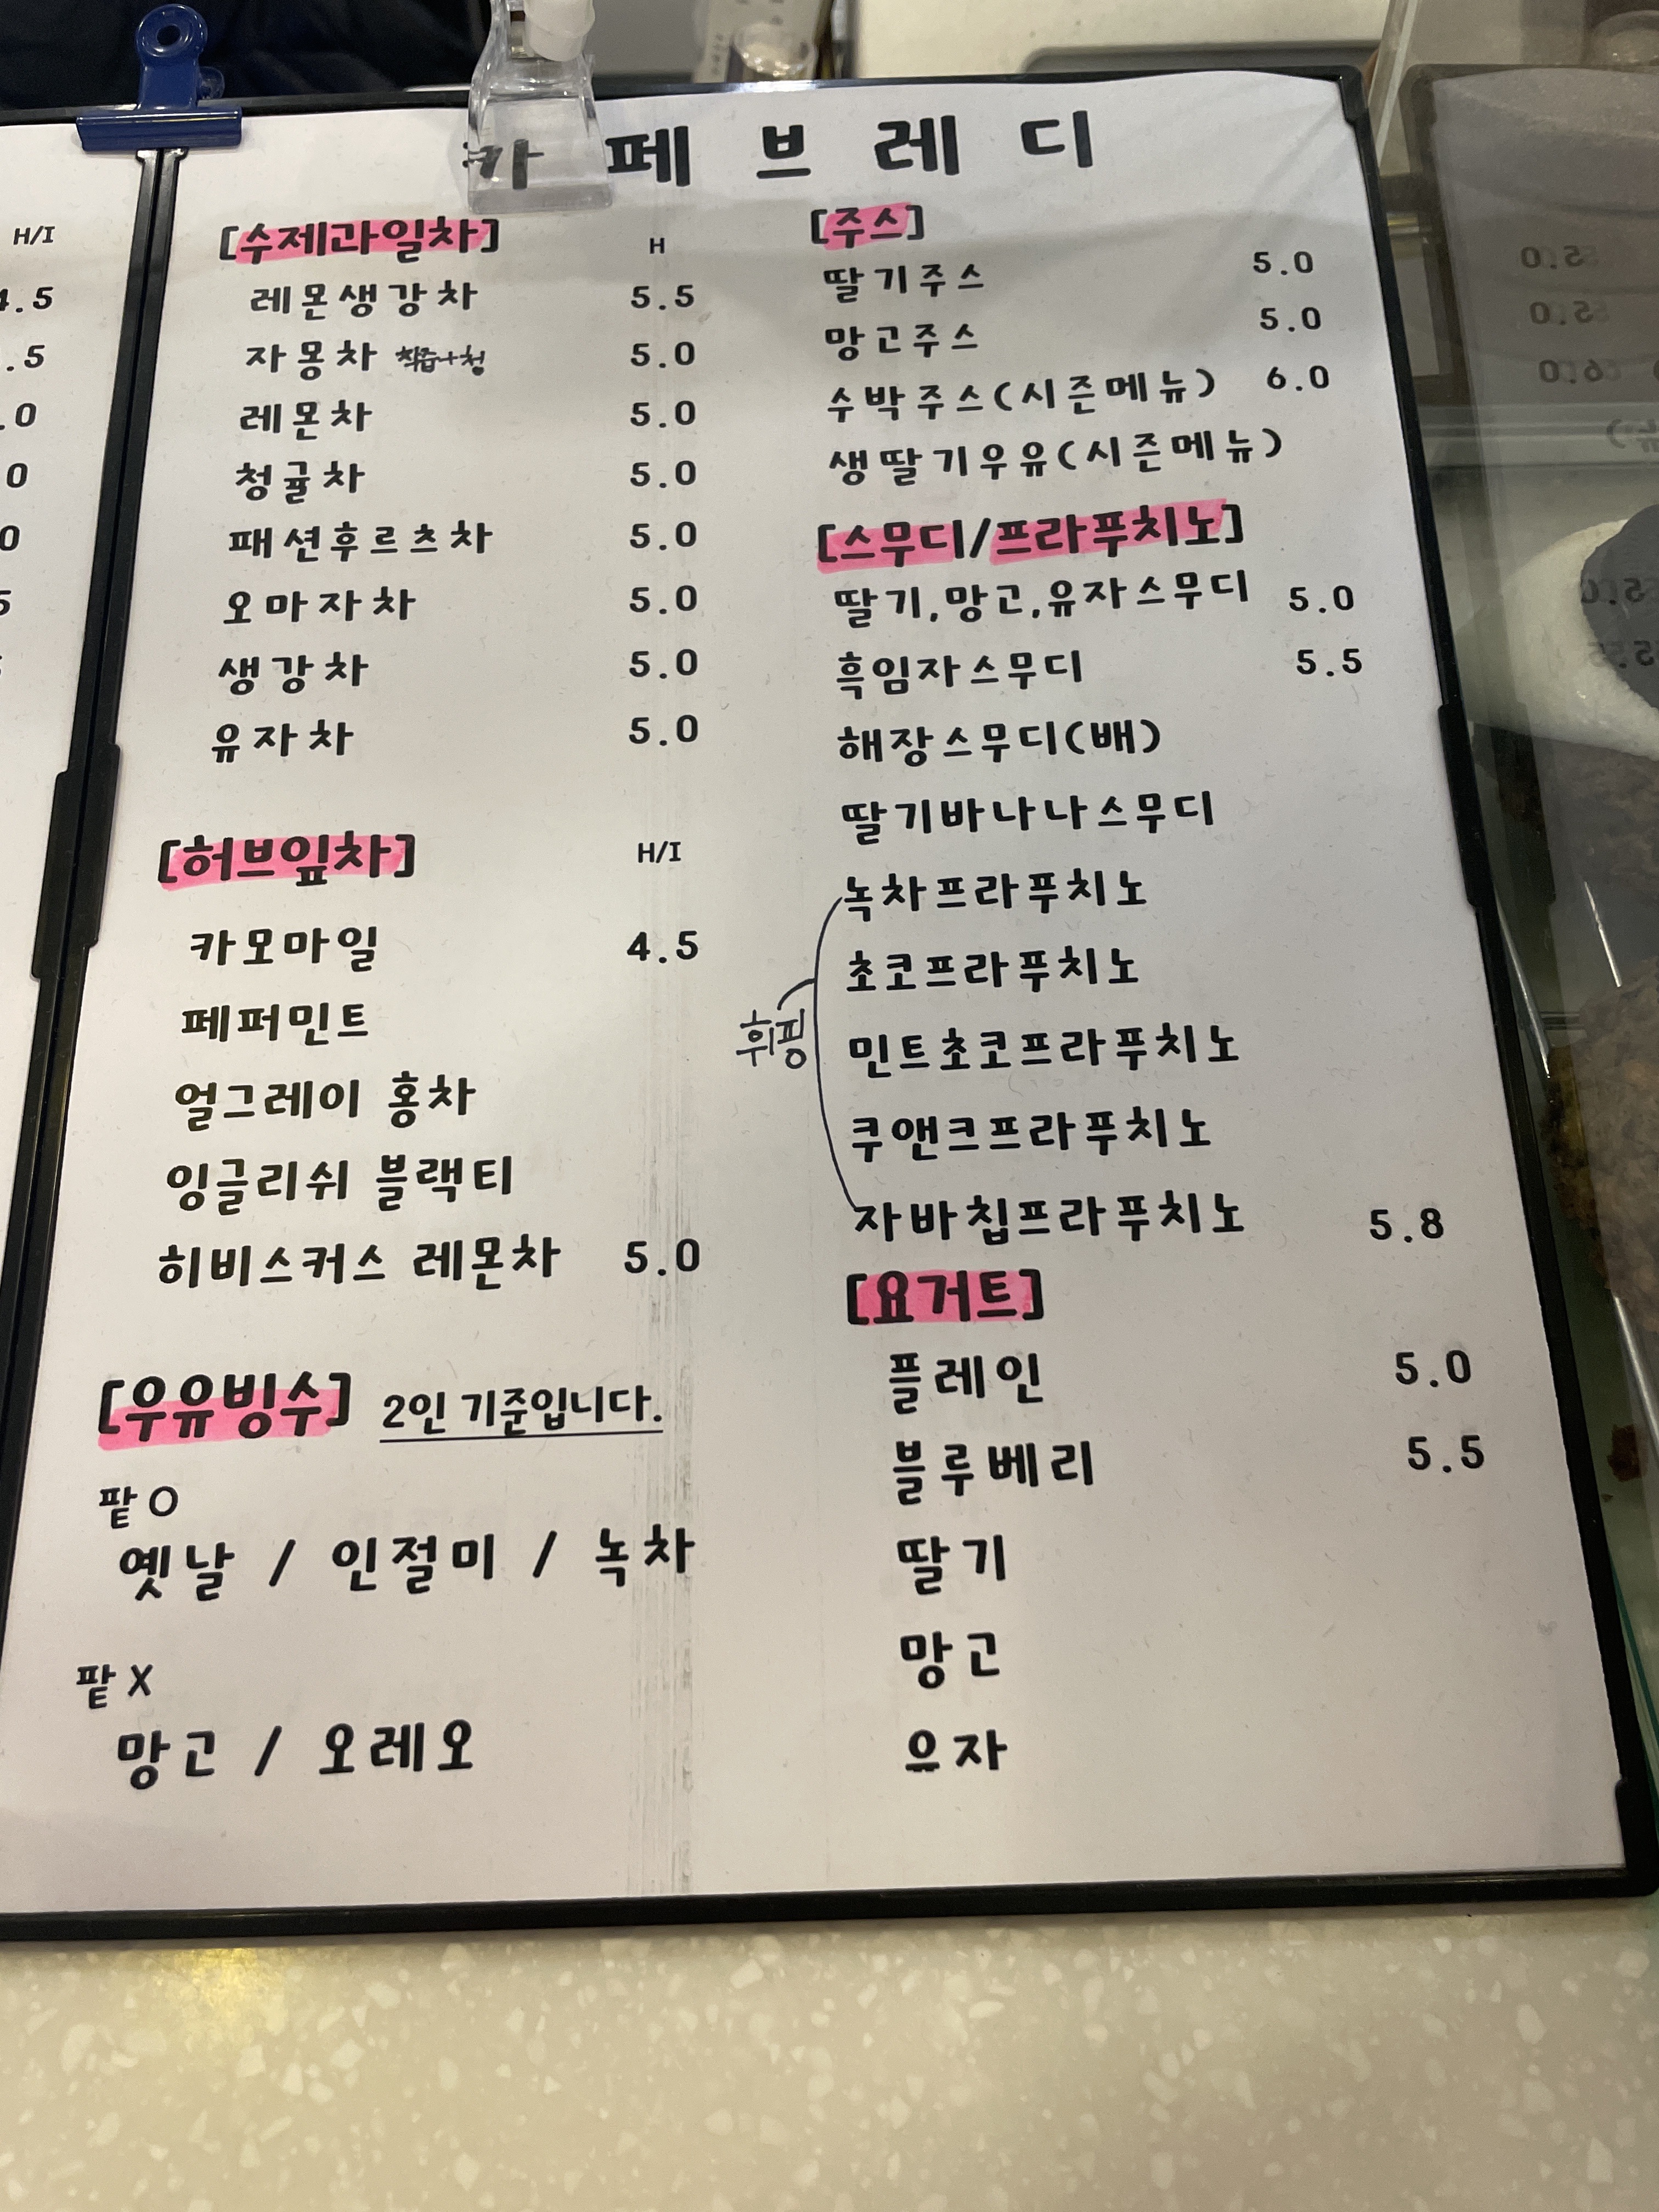 카페브레디
H/I
4.5
.5
.0
0
0
5
[수제과일차] H
레몬생강차 5.5
자몽차 착즙+청 5.0
레몬차 5.0
청귤차 5.0
패션후르츠차 5.0
오마자차 5.0
생강차 5.0
유자차 5.0
[허브잎차] H/I
카모마일 4.5
페퍼민트
얼그레이 홍차
잉글리쉬 블랙티
히비스커스 레몬차 5.0
[우유빙수] 2인 기준입니다.
팥 O
옛날 / 인절미 / 녹차
팥 X
망고 / 오레오
[주스]
딸기주스 5.0
망고주스 5.0
수박주스(시즌메뉴) 6.0
생딸기우유(시즌메뉴)
[스무디/프라푸치노]
딸기,망고,유자스무디 5.0
흑임자스무디 5.5
해장스무디(배)
딸기바나나스무디
녹차프라푸치노
초코프라푸치노
휘핑
민트초코프라푸치노
쿠앤크프라푸치노
자바칩프라푸치노 5.8
[요거트]
플레인 5.0
블루베리 5.5
딸기
망고
유자